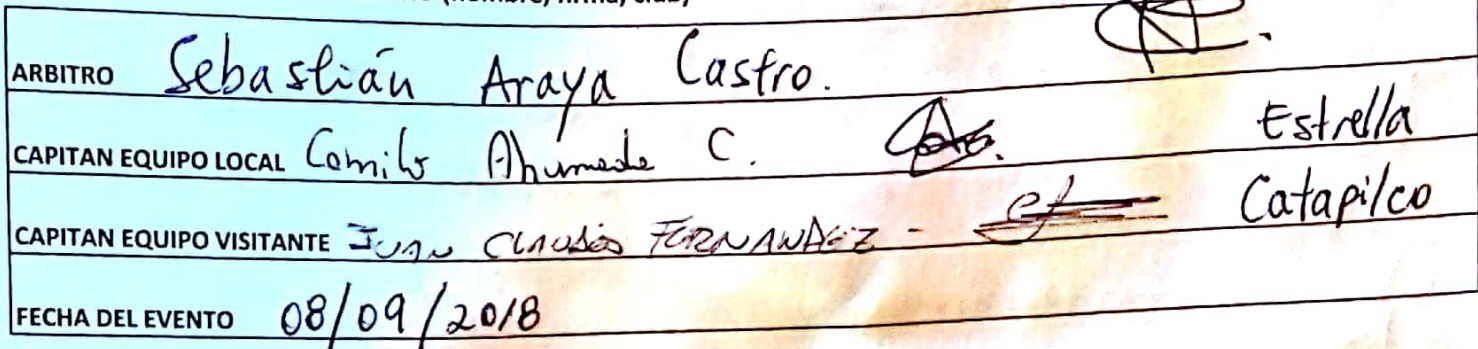 ARBITRO Sebastián Araya Castro.
CAPITAN EQUIPO LOCAL Camilo Ahumada C. Estrella
CAPITAN EQUIPO VISITANTE JUAN CLAUDIO FERNANDEZ - Catapilco
FECHA DEL EVENTO 08/09/2018